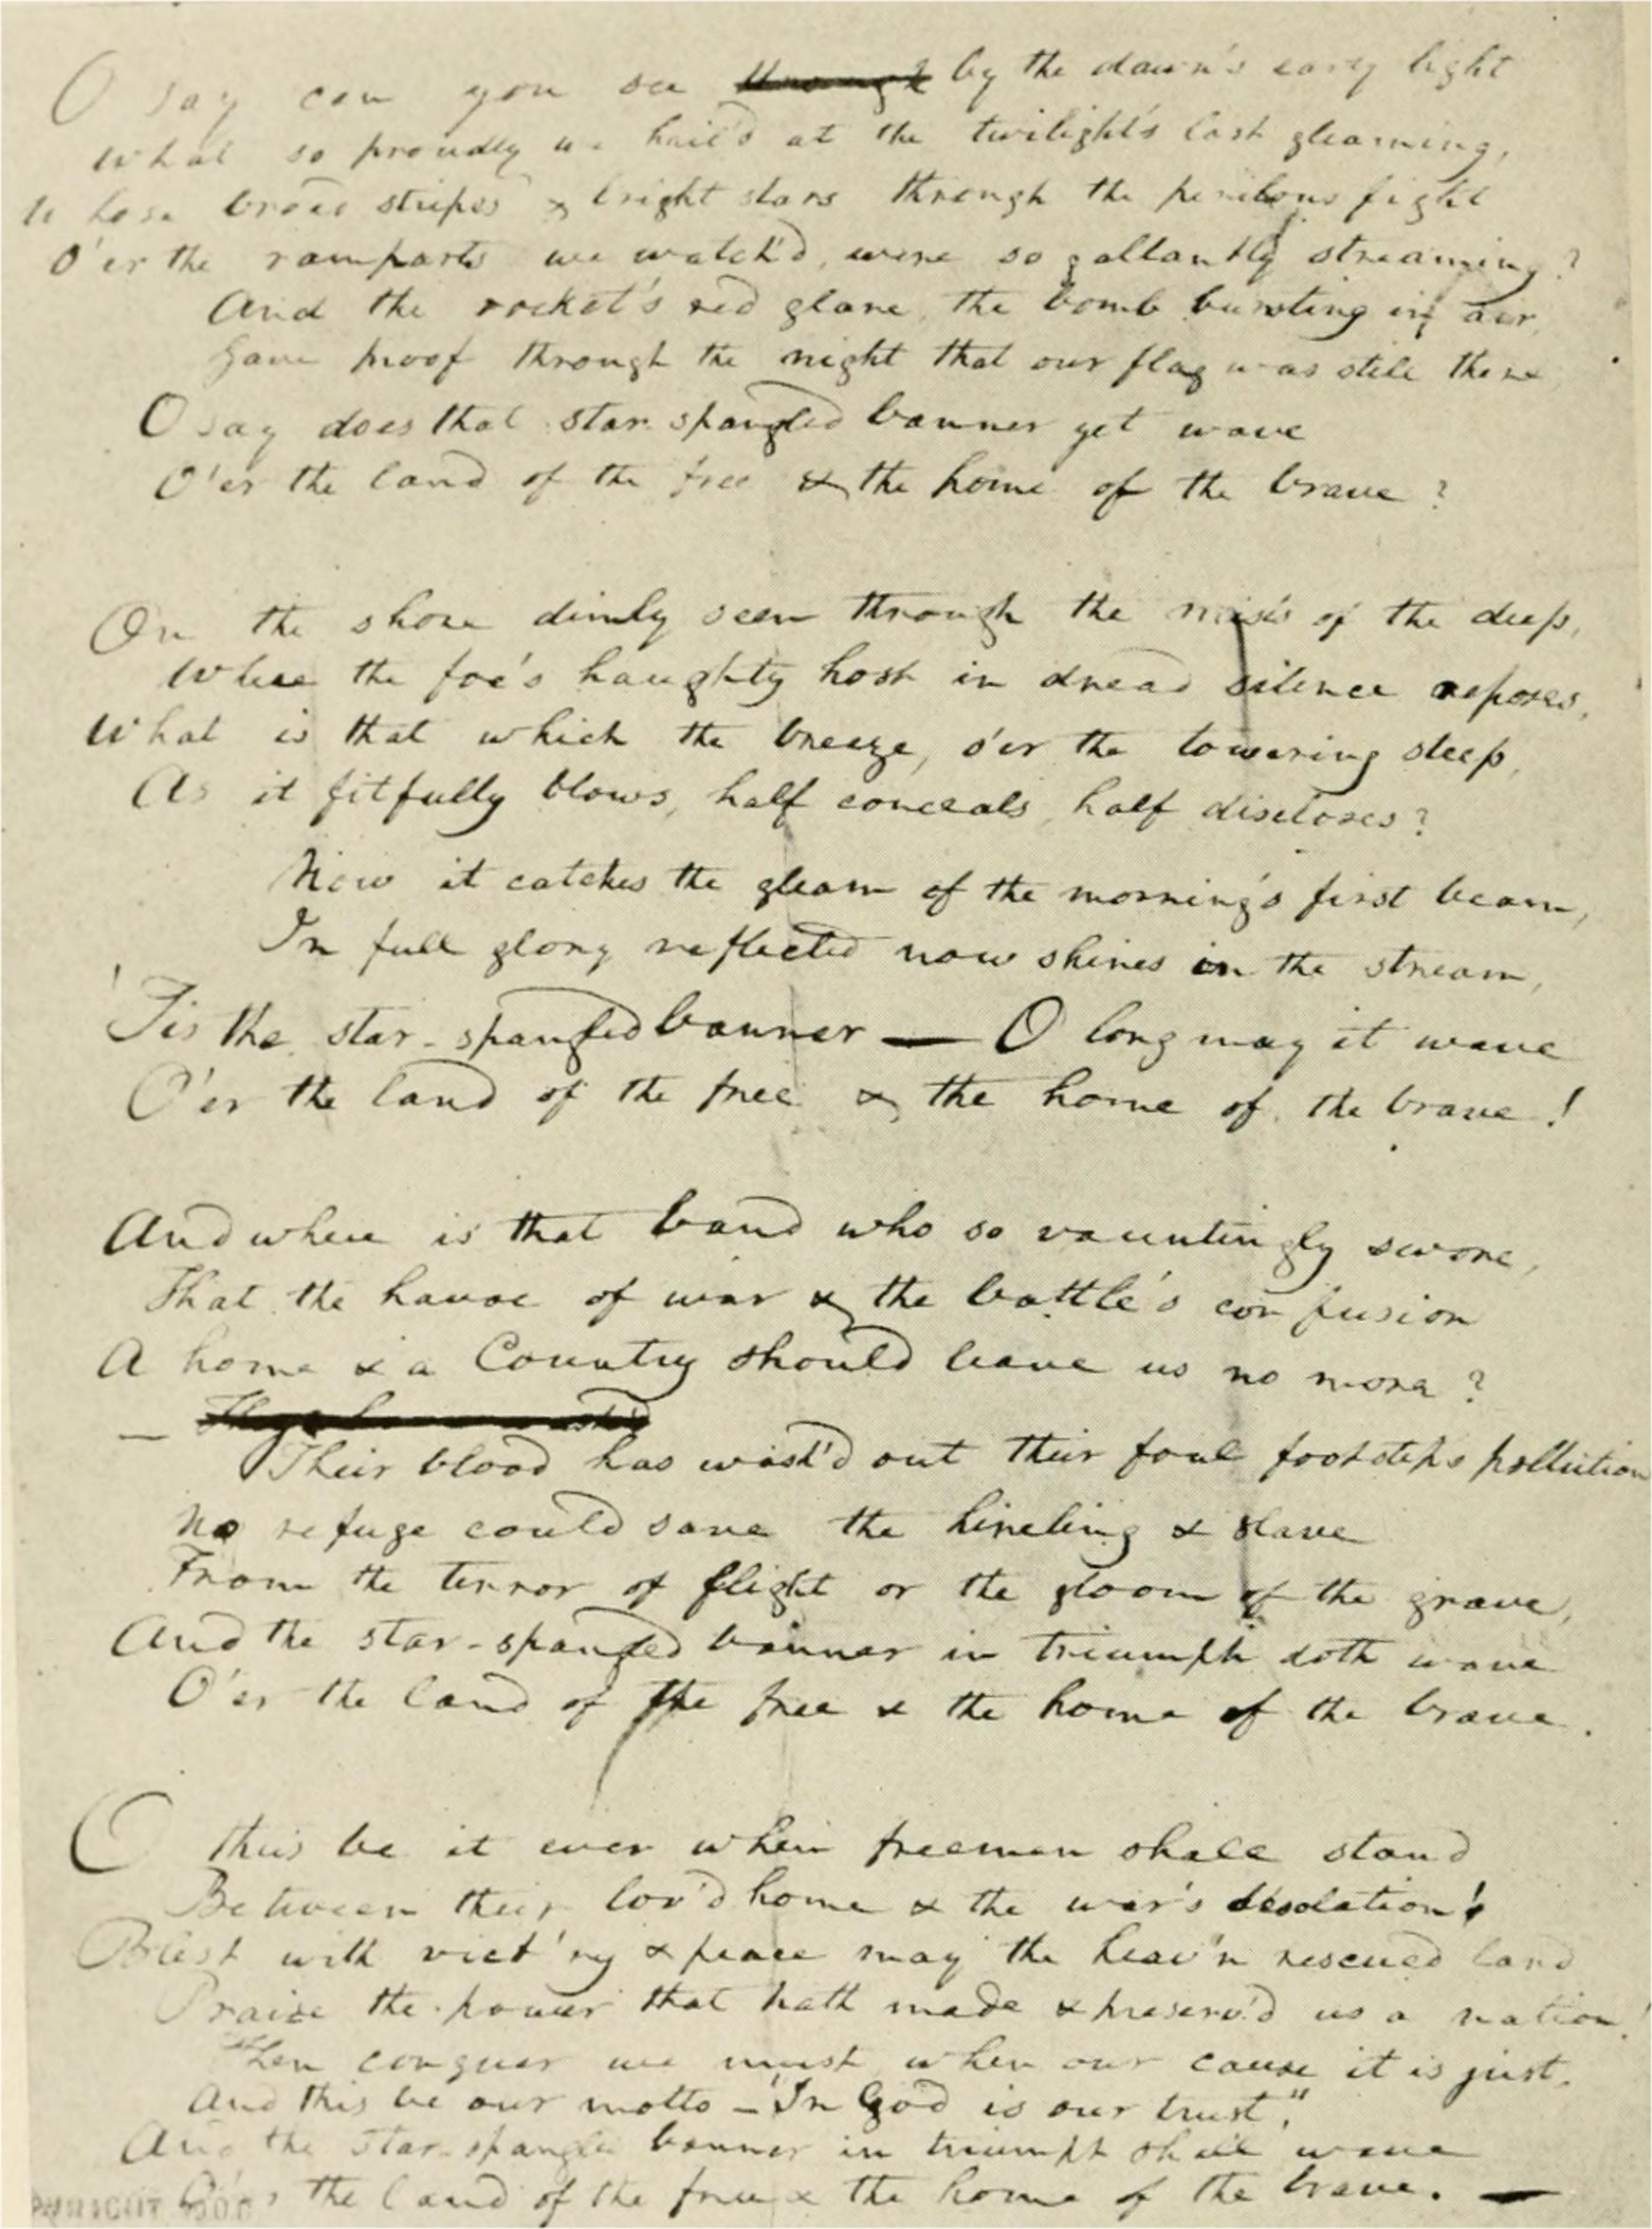 O say can you see ~~through~~ by the dawn's early light
What so proudly we hail'd at the twilight's last gleaming,
Whose broad stripes & bright stars through the perilous fight
O'er the ramparts we watch'd, were so gallantly streaming?
And the rocket's red glare, the bomb bursting in air,
Gave proof through the night that our flag was still there
O say does that star spangled banner yet wave
O'er the land of the free & the home of the brave?
On the shore dimly seen through the mists of the deep,
Where the foe's haughty host in dread silence reposes,
What is that which the breeze, o'er the towering steep,
As it fitfully blows, half conceals, half discloses?
Now it catches the gleam of the morning's first beam,
In full glory reflected now shines in the stream,
'Tis the star-spangled banner — O long may it wave
O'er the land of the free & the home of the brave!
And where is that band who so vauntingly swore,
That the havoc of war & the battle's confusion
A home & a Country should leave us no more?
—
Their blood has wash'd out their foul footsteps pollution
No refuge could save the hireling & slave
From the terror of flight or the gloom of the grave,
And the star-spangled banner in triumph doth wave
O'er the land of the free & the home of the brave.
O thus be it ever when freemen shall stand
Between their lov'd home & the war's desolation!
Blest with vict'ry & peace may the heav'n rescued land
Praise the power that hath made & preserv'd us a nation!
Then conquer we must when our cause it is just.
And this be our motto — "In God is our trust."
And the star-spangled banner in triumph shall wave
O'er the land of the free & the home of the brave. —